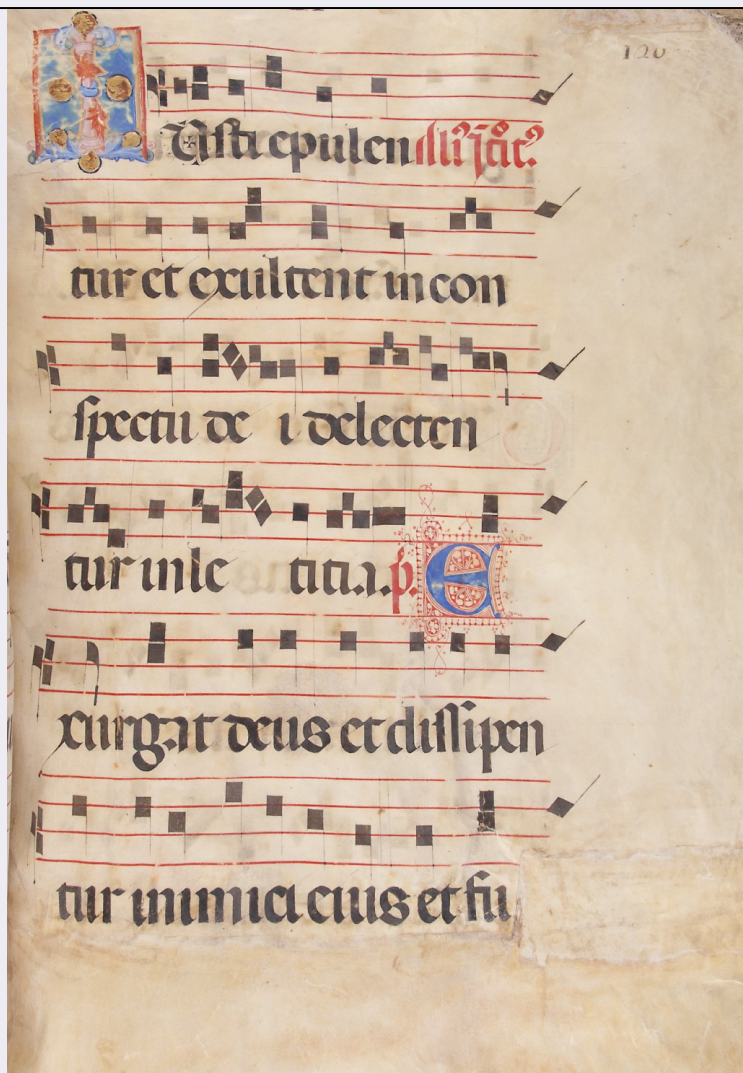 120
IUsti epulen
tur et exultent in con
spectu de i delecten
tur in le titia. p. E
xurgat deus et dissipen
tur inimici eius et fu